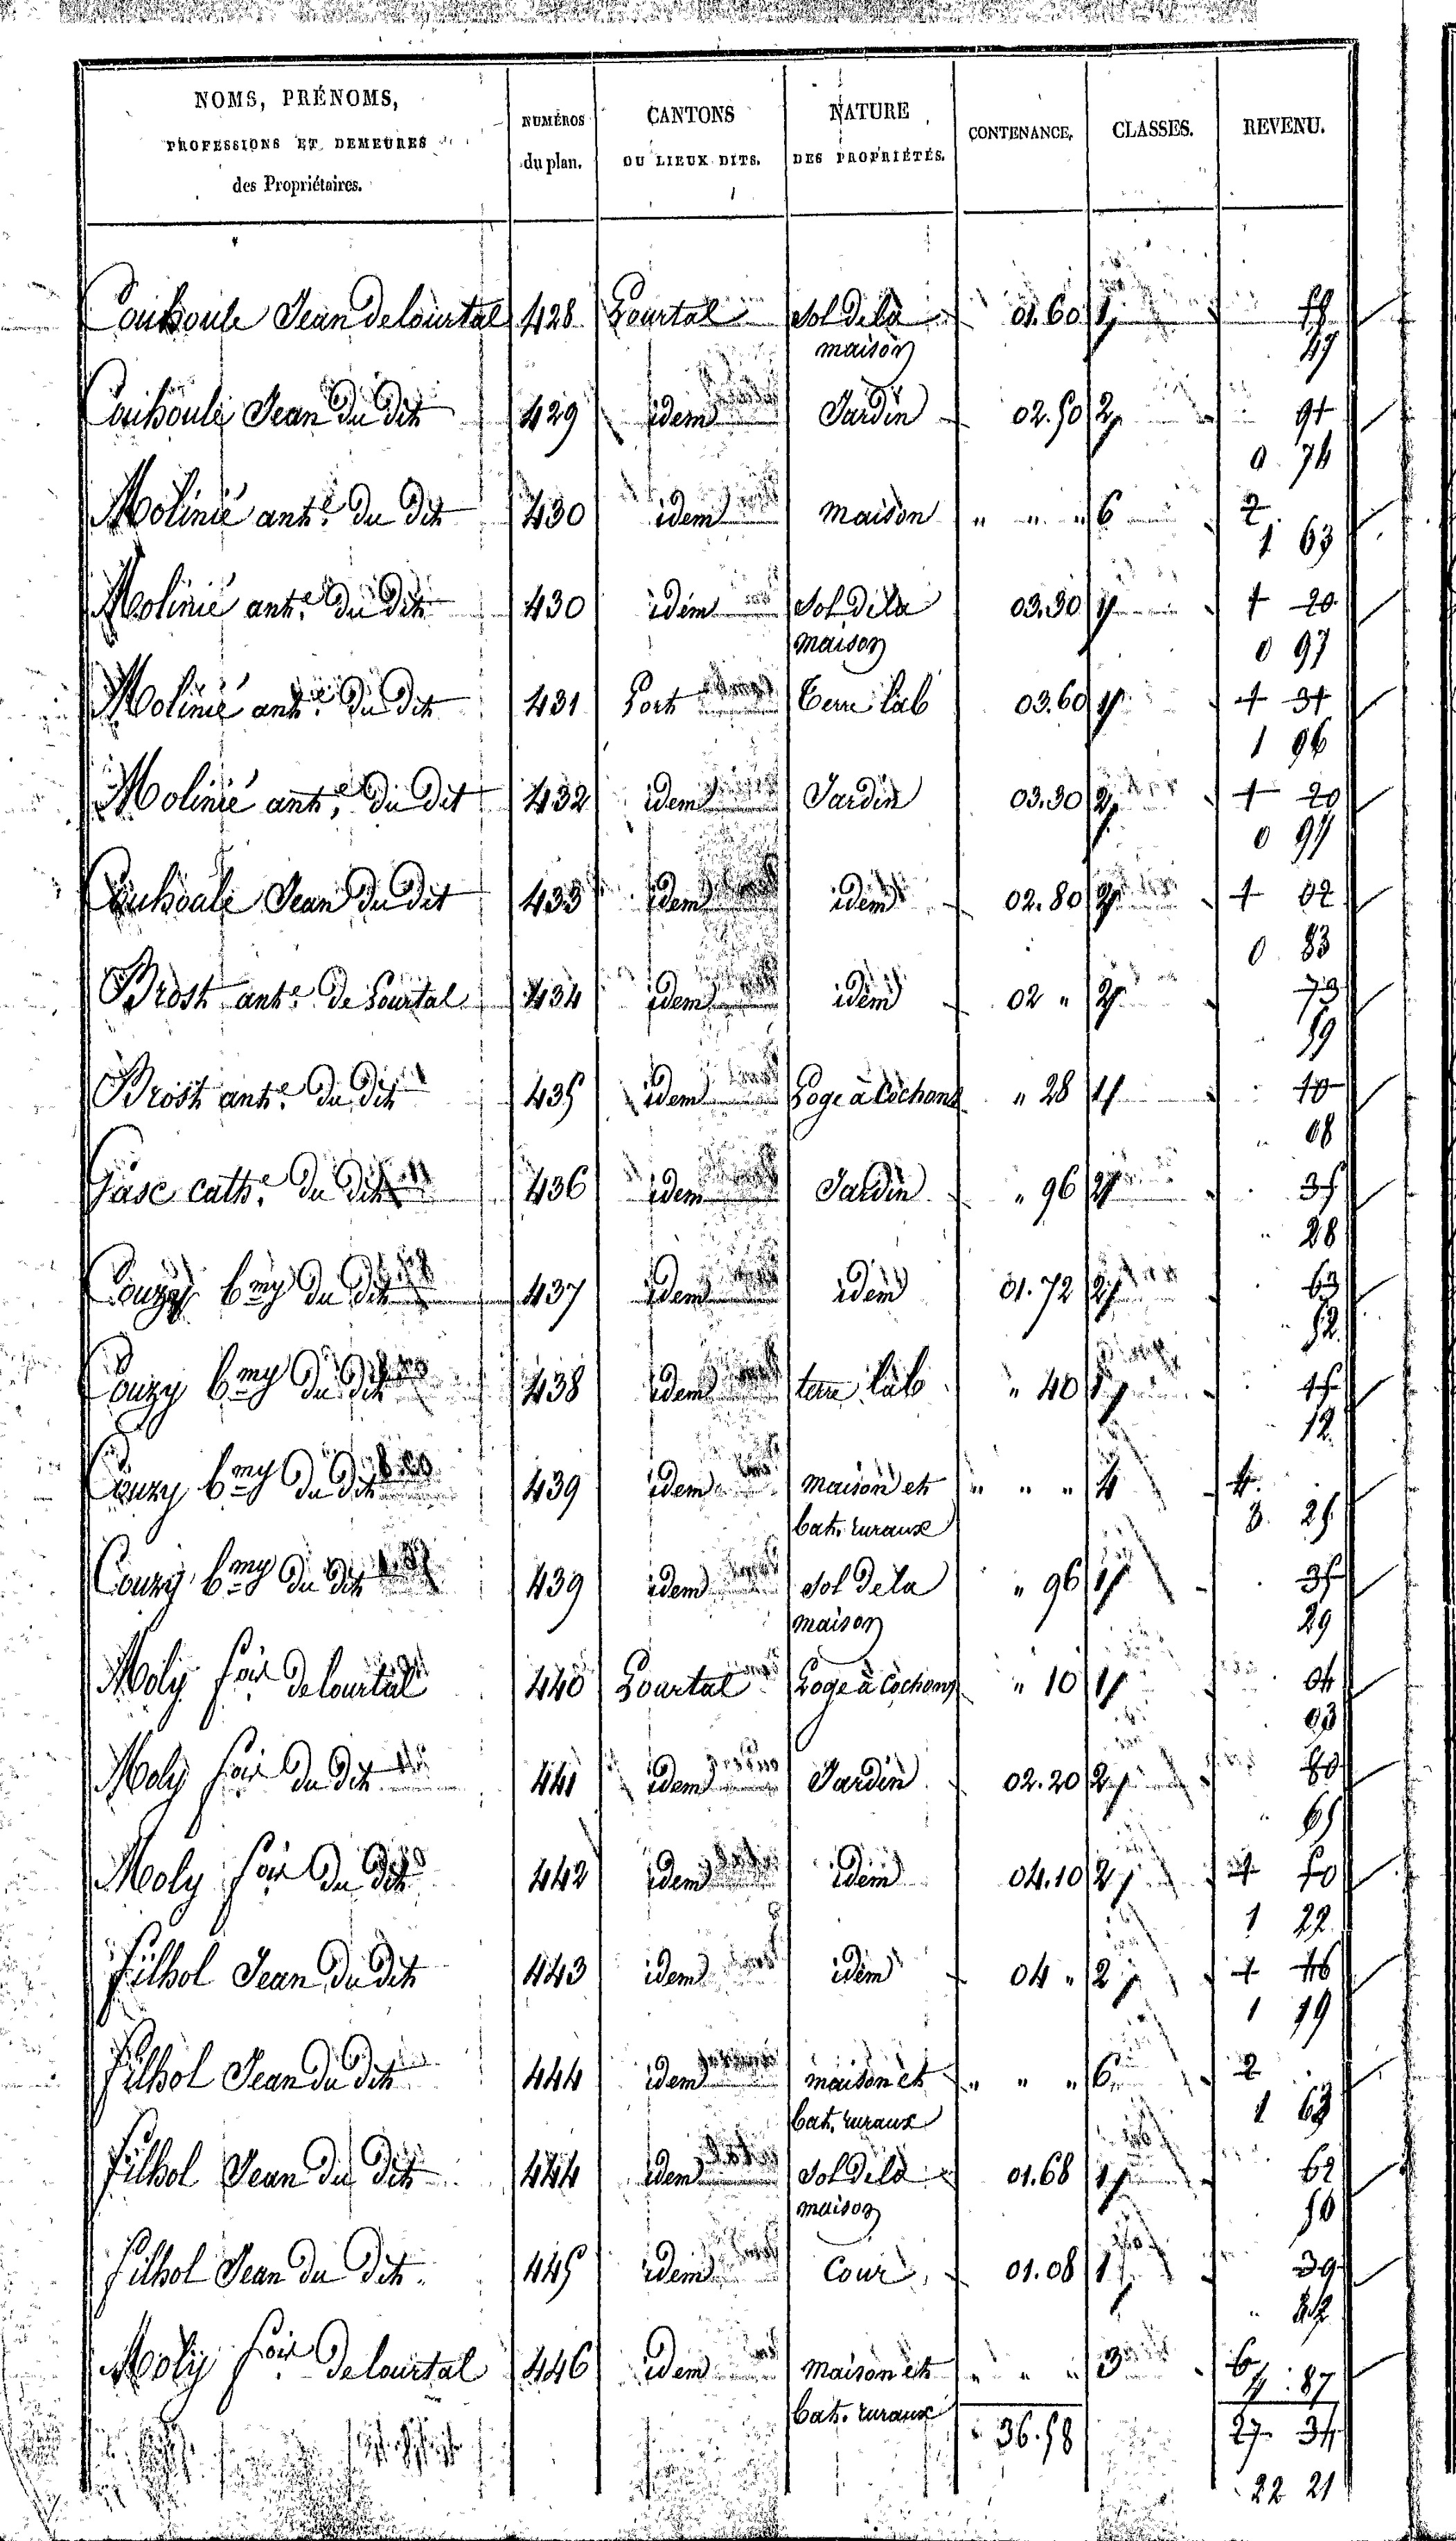 NOMS, PRÉNOMS,
PROFESSIONS ET DEMEURES
des Propriétaires.
NUMÉROS
du plan.
CANTONS
OU LIEUX DITS.
NATURE
DES PROPRIÉTÉS.
CONTENANCE.
CLASSES.
REVENU.
Jean de Lourtal 428 Lourtal Sol de la 01.60 1
maison 47
Jean du dit 429 idem Jardin 02.50 2 91
0 74
Molinié ant.e du dit 430 idem maison " " " 6 2
1 63
Molinié ant.e du dit 430 idem Sol de la 03.30 1 1 20
maison 0 97
Molinié ant.e du dit 431 Port Terre lab 03.60 1 1 31
1 96
Molinié ant.e du dit 432 idem Jardin 03.30 2 1 20
0 97
Jean du dit 433 idem idem 02.80 2 1 02
0 83
Brost ant.e de Lourtal 434 idem idem 02 " 2 73
59
Brost ant.e du dit 435 idem Loge à Cochons " 28 1 10
" 08
Gasc cath.e du dit 436 idem Jardin " 96 2 35
" 28
Couzy b.my du dit 437 idem idem 01.72 2 63
52
Couzy b.my du dit 438 idem terre lab " 40 1 15
12
Couzy b.my du dit 439 idem Maison et " " " 4 4
bat. ruraux 3 25
Couzy b.my du dit 439 idem Sol de la " 96 1 35
maison 29
Moly f.ois de Lourtal 440 Lourtal Loge à Cochons " 10 1 04
03
Moly f.ois du dit 441 idem Jardin 02.20 2 80
65
Moly f.ois du dit 442 idem idem 04.10 2 1 50
1 22
Filhol Jean du dit 443 idem idem 04 " 2 1 46
1 19
Filhol Jean du dit 444 idem maison et " " " 6 2
bat. ruraux 1 63
Filhol Jean du dit 444 idem Sol de la 01.68 1 62
maison 50
Filhol Jean du dit 445 idem Cour 01.08 1 39
Moly f.ois de Lourtal 446 idem Maison et " " " 3 6
4 87
bat. ruraux 36.58 27 34
22 21